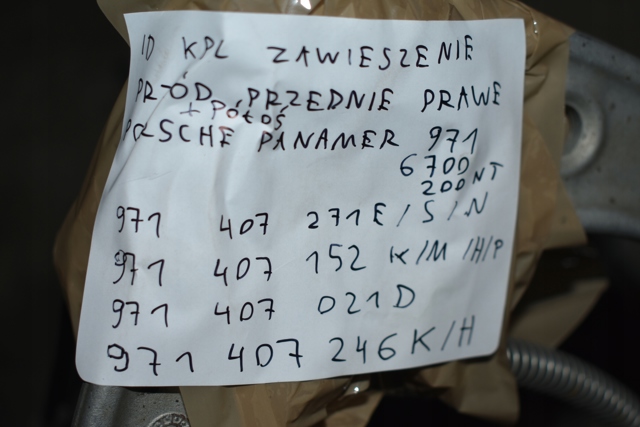 1D KPL ZAWIESZENIE
PRÓD PRZEDNIE PRAWE
+ PÓŁOŚ
PORSCHE PANAMER 971
6700
200NT
971 407 271E/S/N
971 407 152 K/M/H/P
971 407 021D
971 407 246K/H